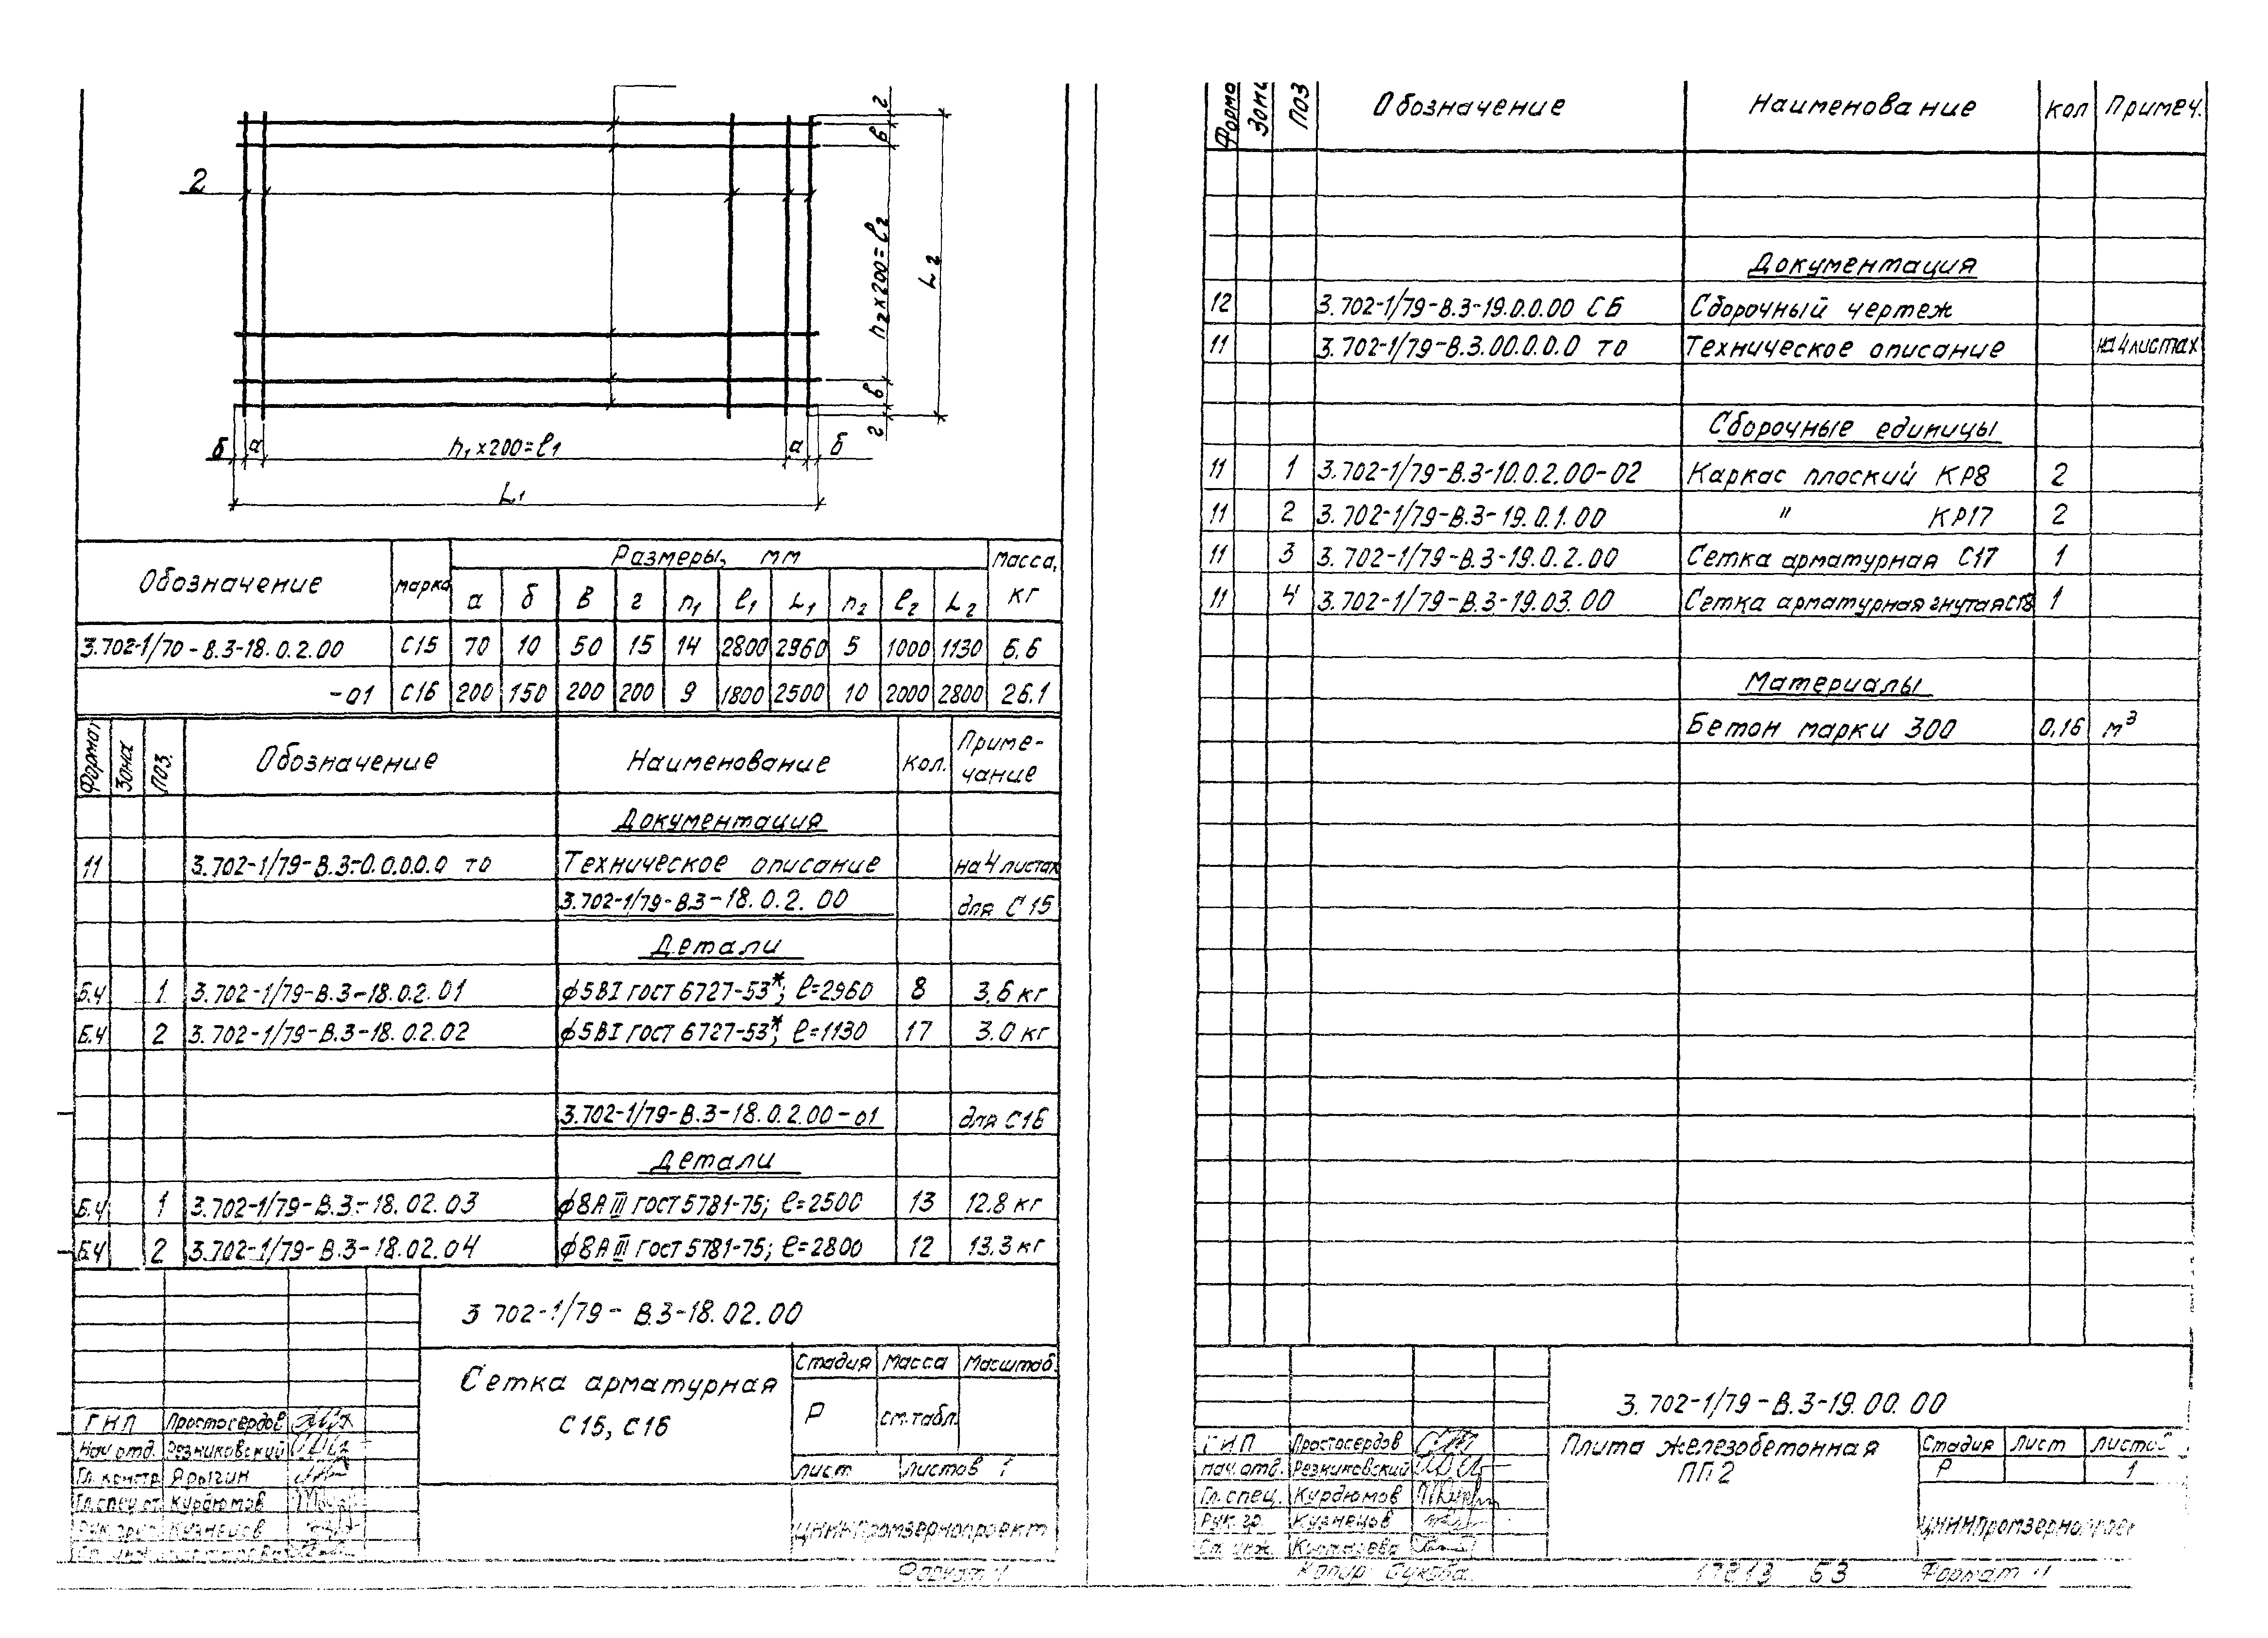 2
г
в
h₂×200=ℓ₂
L₂
в
г
б
а
h₁×200=ℓ₁
а
б
L₁
Обозначение
марка
Размеры, мм
Масса, кг
а б в г n₁ ℓ₁ L₁ n₂ ℓ₂ L₂
3.702-1/70-В.3-18.0.2.00 С15 70 10 50 15 14 2800 2960 5 1000 1130 6.6
-01 С16 200 150 200 200 9 1800 2500 10 2000 2800 26.1
Формат Зона Поз. Обозначение Наименование Кол. Приме-
чание
Документация
11 3.702-1/79-В.3-0.0.0.0.0 ТО Техническое описание на 4 листах
3.702-1/79-В.3-18.0.2.00 для С15
Детали
Б.Ч 1 3.702-1/79-В.3-18.0.2.01 ф5ВI ГОСТ 6727-53*; ℓ=2960 8 3,6 кг
Б.Ч 2 3.702-1/79-В.3-18.0.2.02 ф5ВI ГОСТ 6727-53*; ℓ=1130 17 3.0 кг
3.702-1/79-В.3-18.0.2.00-01 для С16
Детали
Б.Ч 1 3.702-1/79-В.3-18.02.03 ф8АIII ГОСТ 5781-75; ℓ=2500 13 12.8 кг
Б.Ч 2 3.702-1/79-В.3-18.02.04 ф8АIII ГОСТ 5781-75; ℓ=2800 12 13.3 кг
3 702-1/79-В.3-18.02.00
Сетка арматурная
С15, С16
Стадия Масса Масштаб.
Р см.табл.
Лист Листов 1
ЦНИИпромзернопроект
ГИП Простосердов
Нач отд. Резниковский
Гл. констр. Ярыгин
Гл. спец от. Курдюмов
Рук. груп. Кузнецов
Ст. инж.
Формат 11
Форма Зона Поз Обозначение Наименование Кол Примеч.
Документация
12 3.702-1/79-В.3-19.0.0.00 СБ Сборочный чертеж
11 3.702-1/79-В.3.00.0.0.0 ТО Техническое описание на 4 листах
Сборочные единицы
11 1 3.702-1/79-В.3-10.0.2.00-02 Каркас плоский КР8 2
11 2 3.702-1/79-В.3-19.0.1.00 " КР17 2
11 3 3.702-1/79-В.3-19.0.2.00 Сетка арматурная С17 1
11 4 3.702-1/79-В.3-19.03.00 Сетка арматурная гнутая С18 1
Материалы
Бетон марки 300 0,16 м³
3.702-1/79-В.3-19.00.00
Плита железобетонная
ПП2
Стадия Лист Листов
Р 1
ЦНИИпромзернопроек
ГИП Простосердов
Нач. отд. Резниковский
Гл. спец. Курдюмов
Рук. гр. Кузнецов
Ст. инж. Костырева
Копир Сукова 17813 53 Формат 11